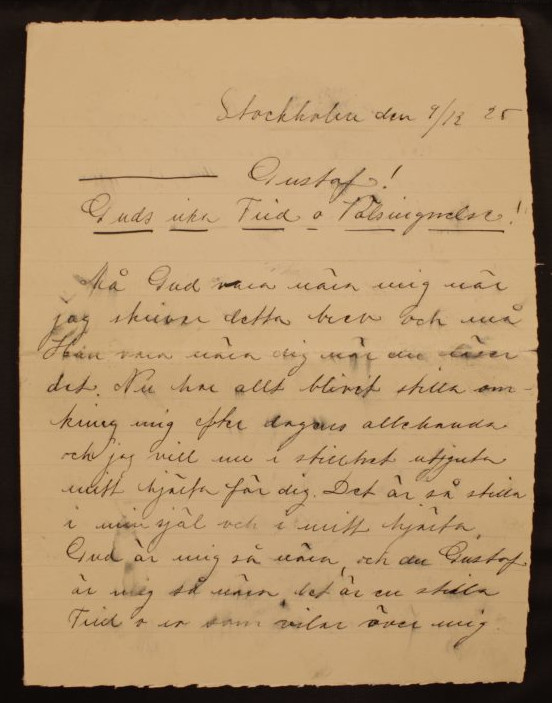 Stockholm den 9/12 25
Gustaf!
Guds rika Frid o Välsingnelse!
Må Gud vara nära mig när
jag skriver detta brev och må
Han vara nära dig när du läser
det. Nu har allt blivet stilla om-
kring mig efter dagens allehanda
och jag vill nu i stillhet utgjuta
mitt hjärta för dig. Det är så stilla
i min själ och i mitt hjärta.
Gud är mig så nära, och du Gustaf
är mig så nära, det är en stilla
Frid o ro som vilar över mig.